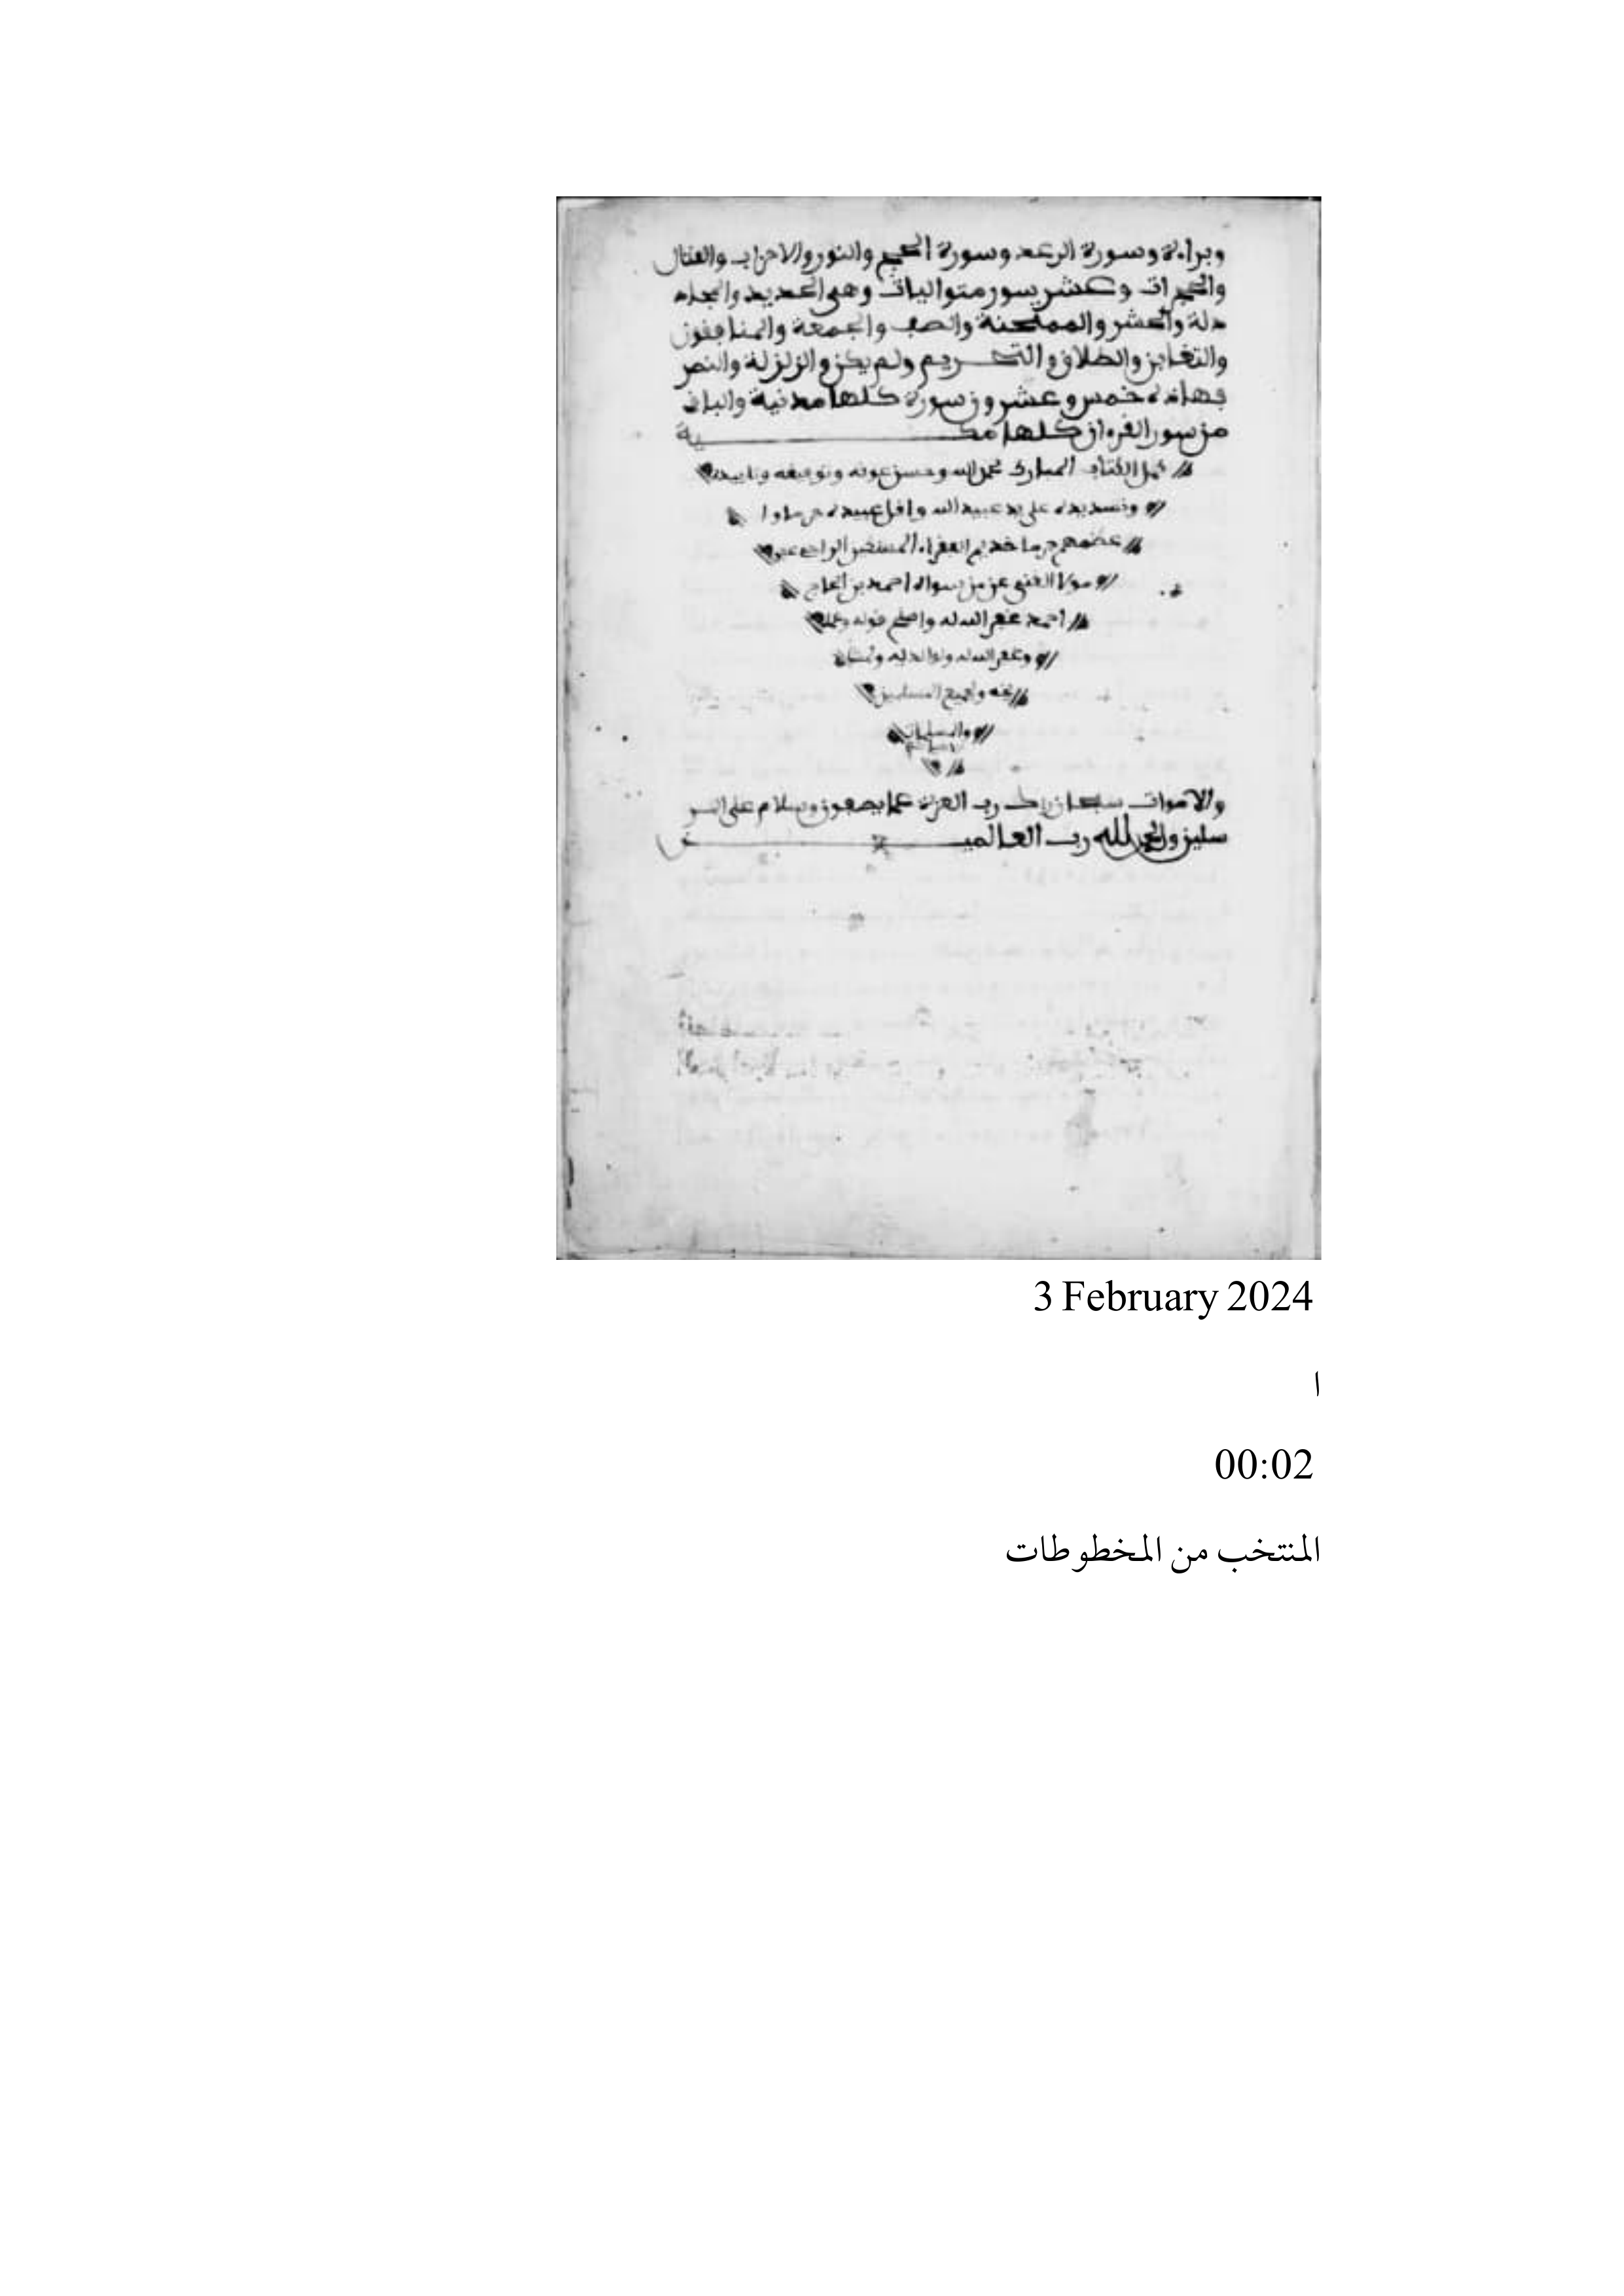 وبراءة وسورة الرعد وسورة الحج والنور والاحزاب والقتال
والحجرات وعشر سور متواليات وهي الحديد والمجا
دلة والحشر والممتحنة والصف والجمعة والمنافقون
والتغابن والطلاق والتحريم ولم يكن والزلزلة والنصر
فهاذه خمس وعشرون سورة كلها مدنية والباقي
من سور القرءان كلها مكية
كمل الكتاب المبارك بحمد الله وحسن عونه وتوفيقه وتاييده
وتسديده على يد عبيد الله واقل عبيده
عظمهم جرما خديم الفقراء الراجي عفو
مولاه الغني عن من سواه احمد بن الحاج
احمد غفر الله له واصلح قوله وعمله
وغفر الله له ولوالديه ولمشا
يخه ولجميع المسلمين
والمسلمات
والاموات سبحان ربك رب العزة عما يصفون وسلام على المر
سلين والحمد لله رب العالمين
3 February 2024
ا
00:02
المنتخب من المخطوطات